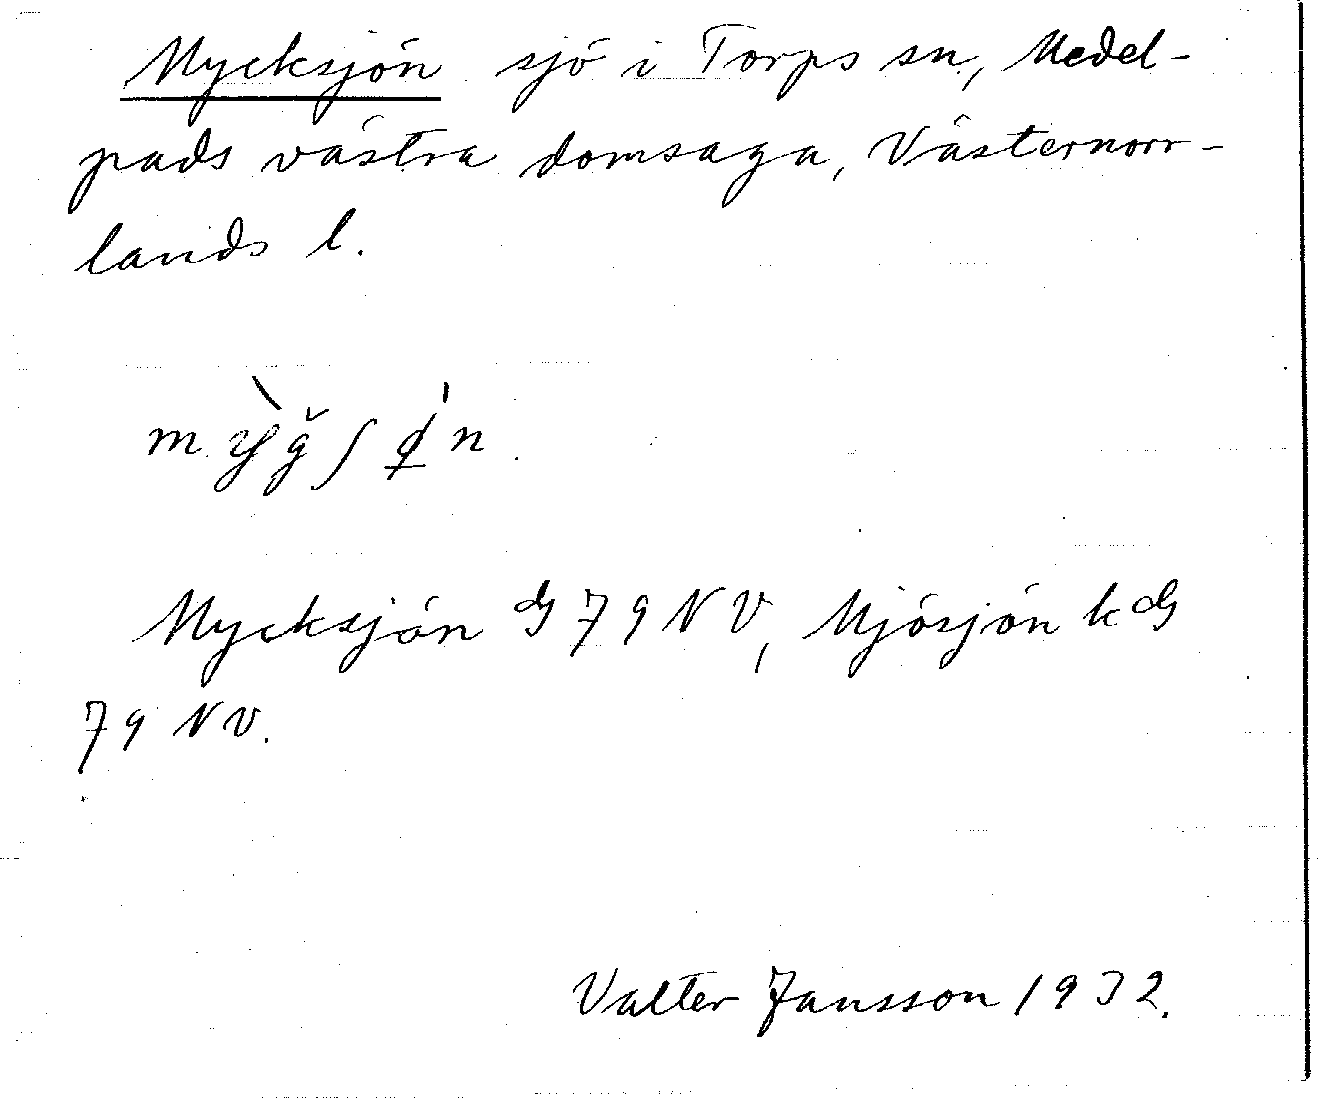 Mycksjön sjö i Torps sn, Medel-
pads västra domsaga, Västernorr-
lands l.
Mycksjön 79 NV, Mjösjön k
79 NV.
Valter Jansson 1932.